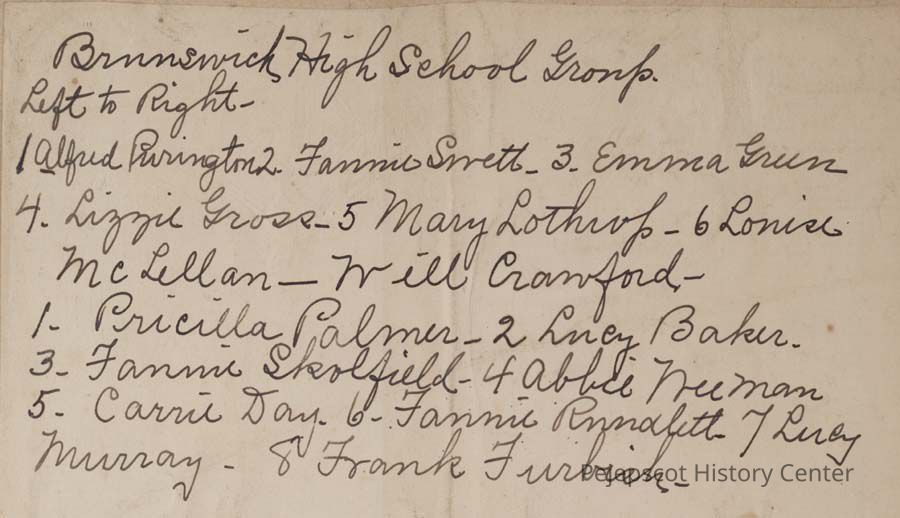 Brunswick, High School Group.
Left to Right-
1 Alfred Purington 2. Fannie Swett - 3. Emma Green
4. Lizzie Gross - 5 Mary Lothrop - 6 Louise
McLellan — Will Crawford -
1 - Pricilla Palmer - 2 Lucy Baker.
3 - Fannie Skolfield - 4 Abbie Weeman
5 - Carrie Day. 6 - Fannie Rundlett - 7 Lucy
Murray - 8 Frank Furbish -
Pejepscot History Center